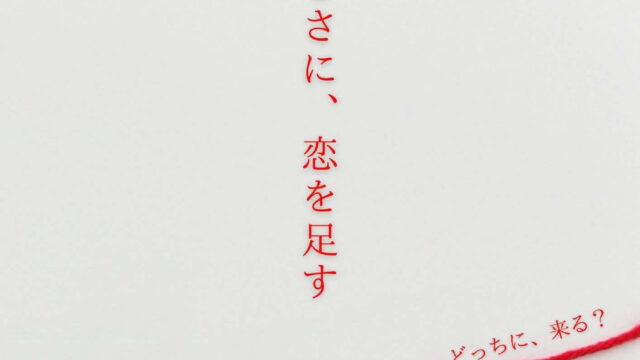 さに、恋を足す
どっちに、来る？